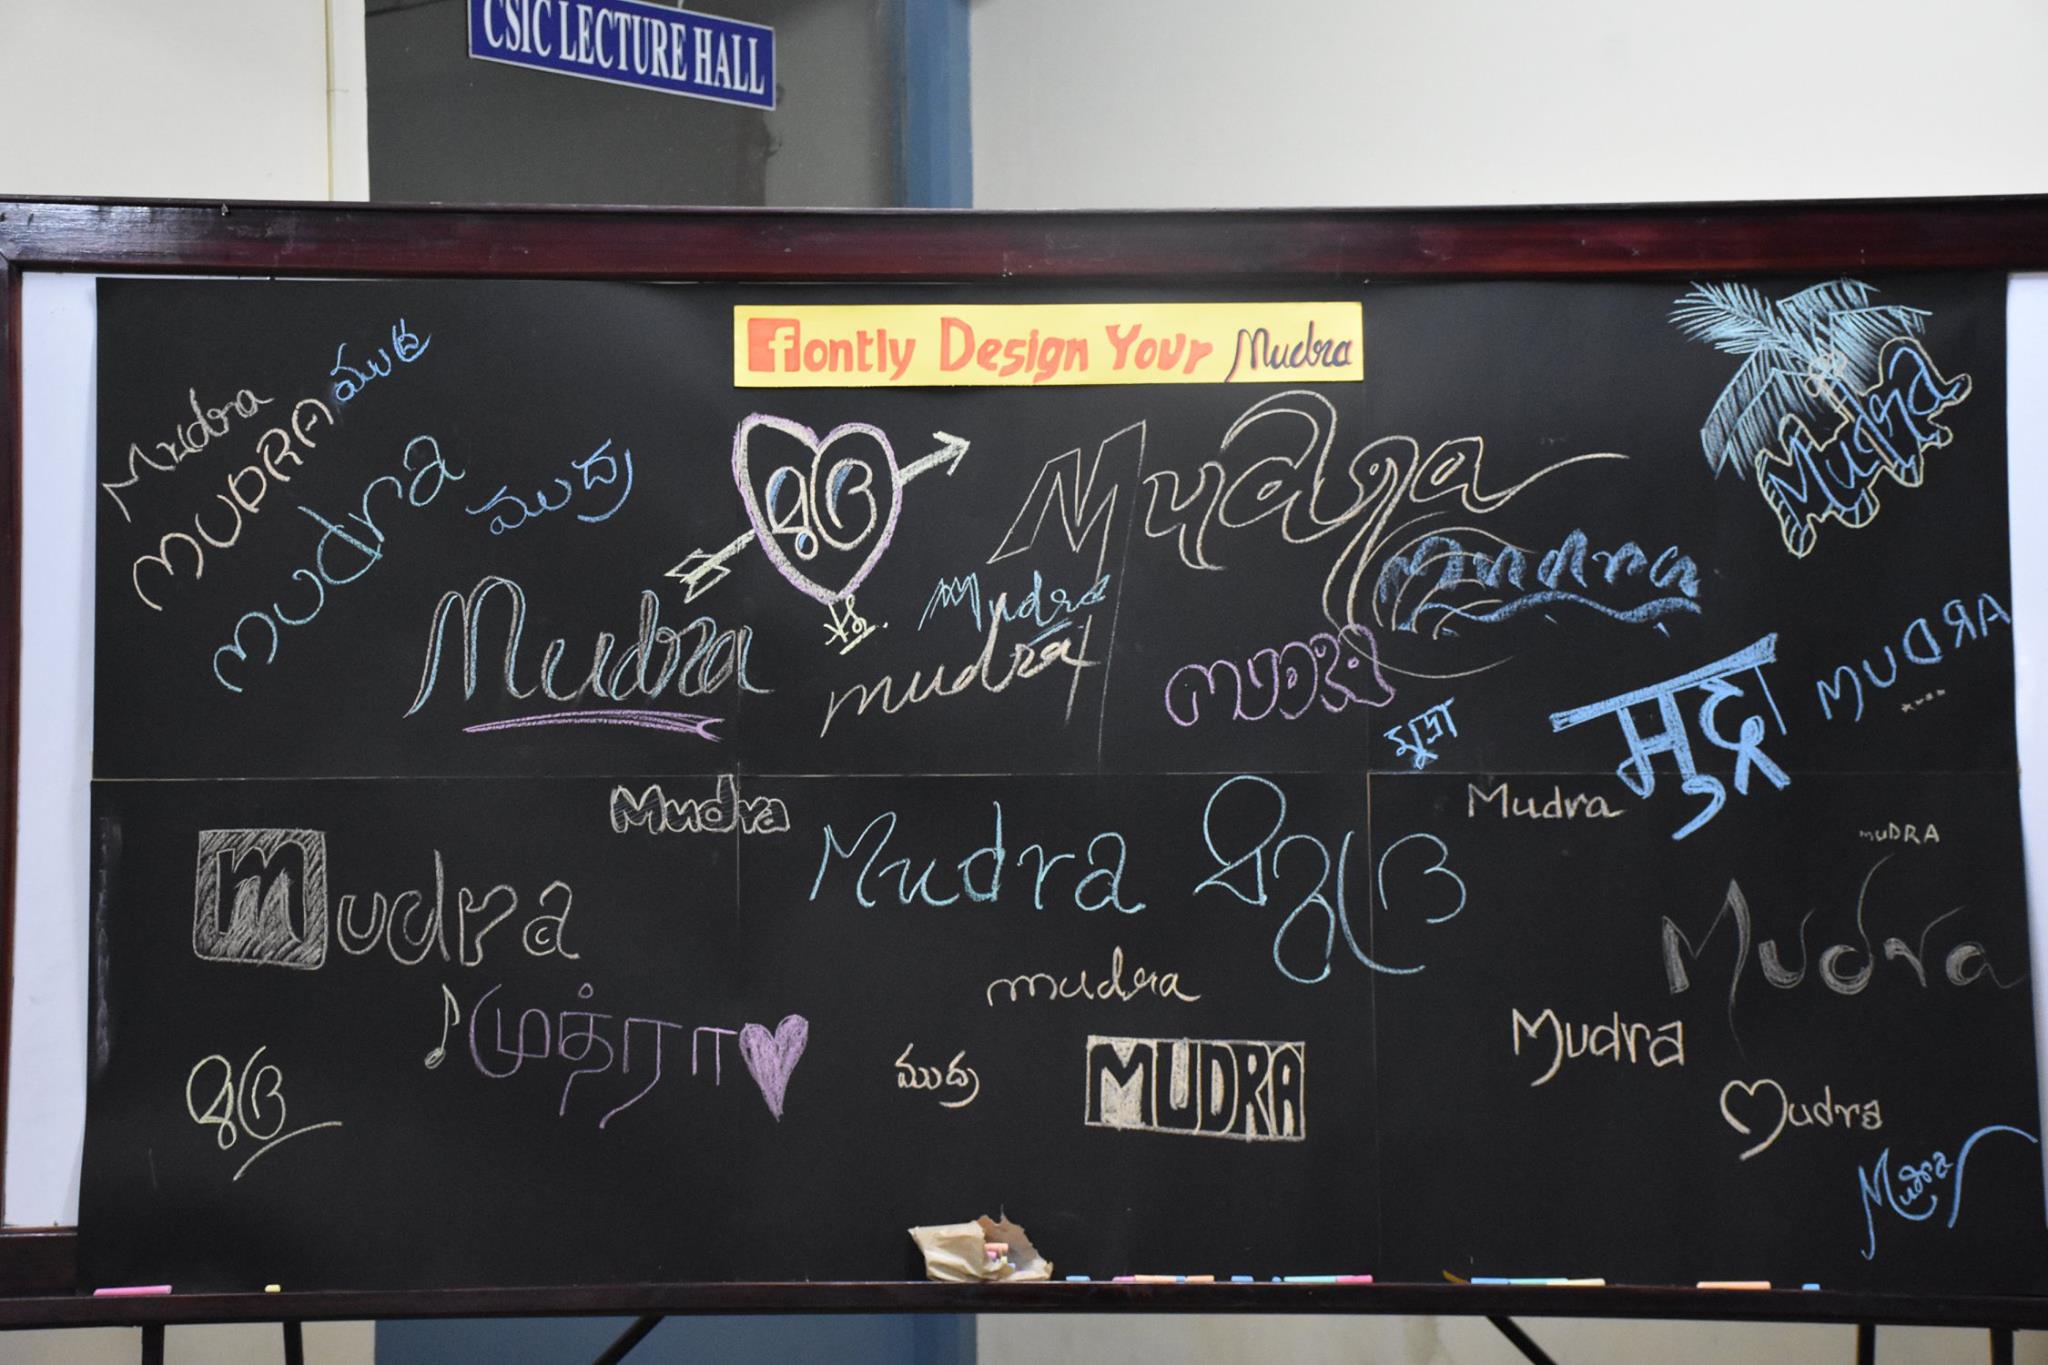 CSIC LECTURE HALL
fontly Design Your Mudra
Mudra
MUDRA
mudra
ముద్ర
Mudra
Mudra
Mudra
Mudra
mudra
Mudra
MUDRA
MUDRA
मुद्रा
Mudra
Mudra
Mudra
Mudra
muDRA
Mudra
Mudra
mudra
முத்ரா
ముద్ర
MUDRA
Mudra
Mudra
Mudra